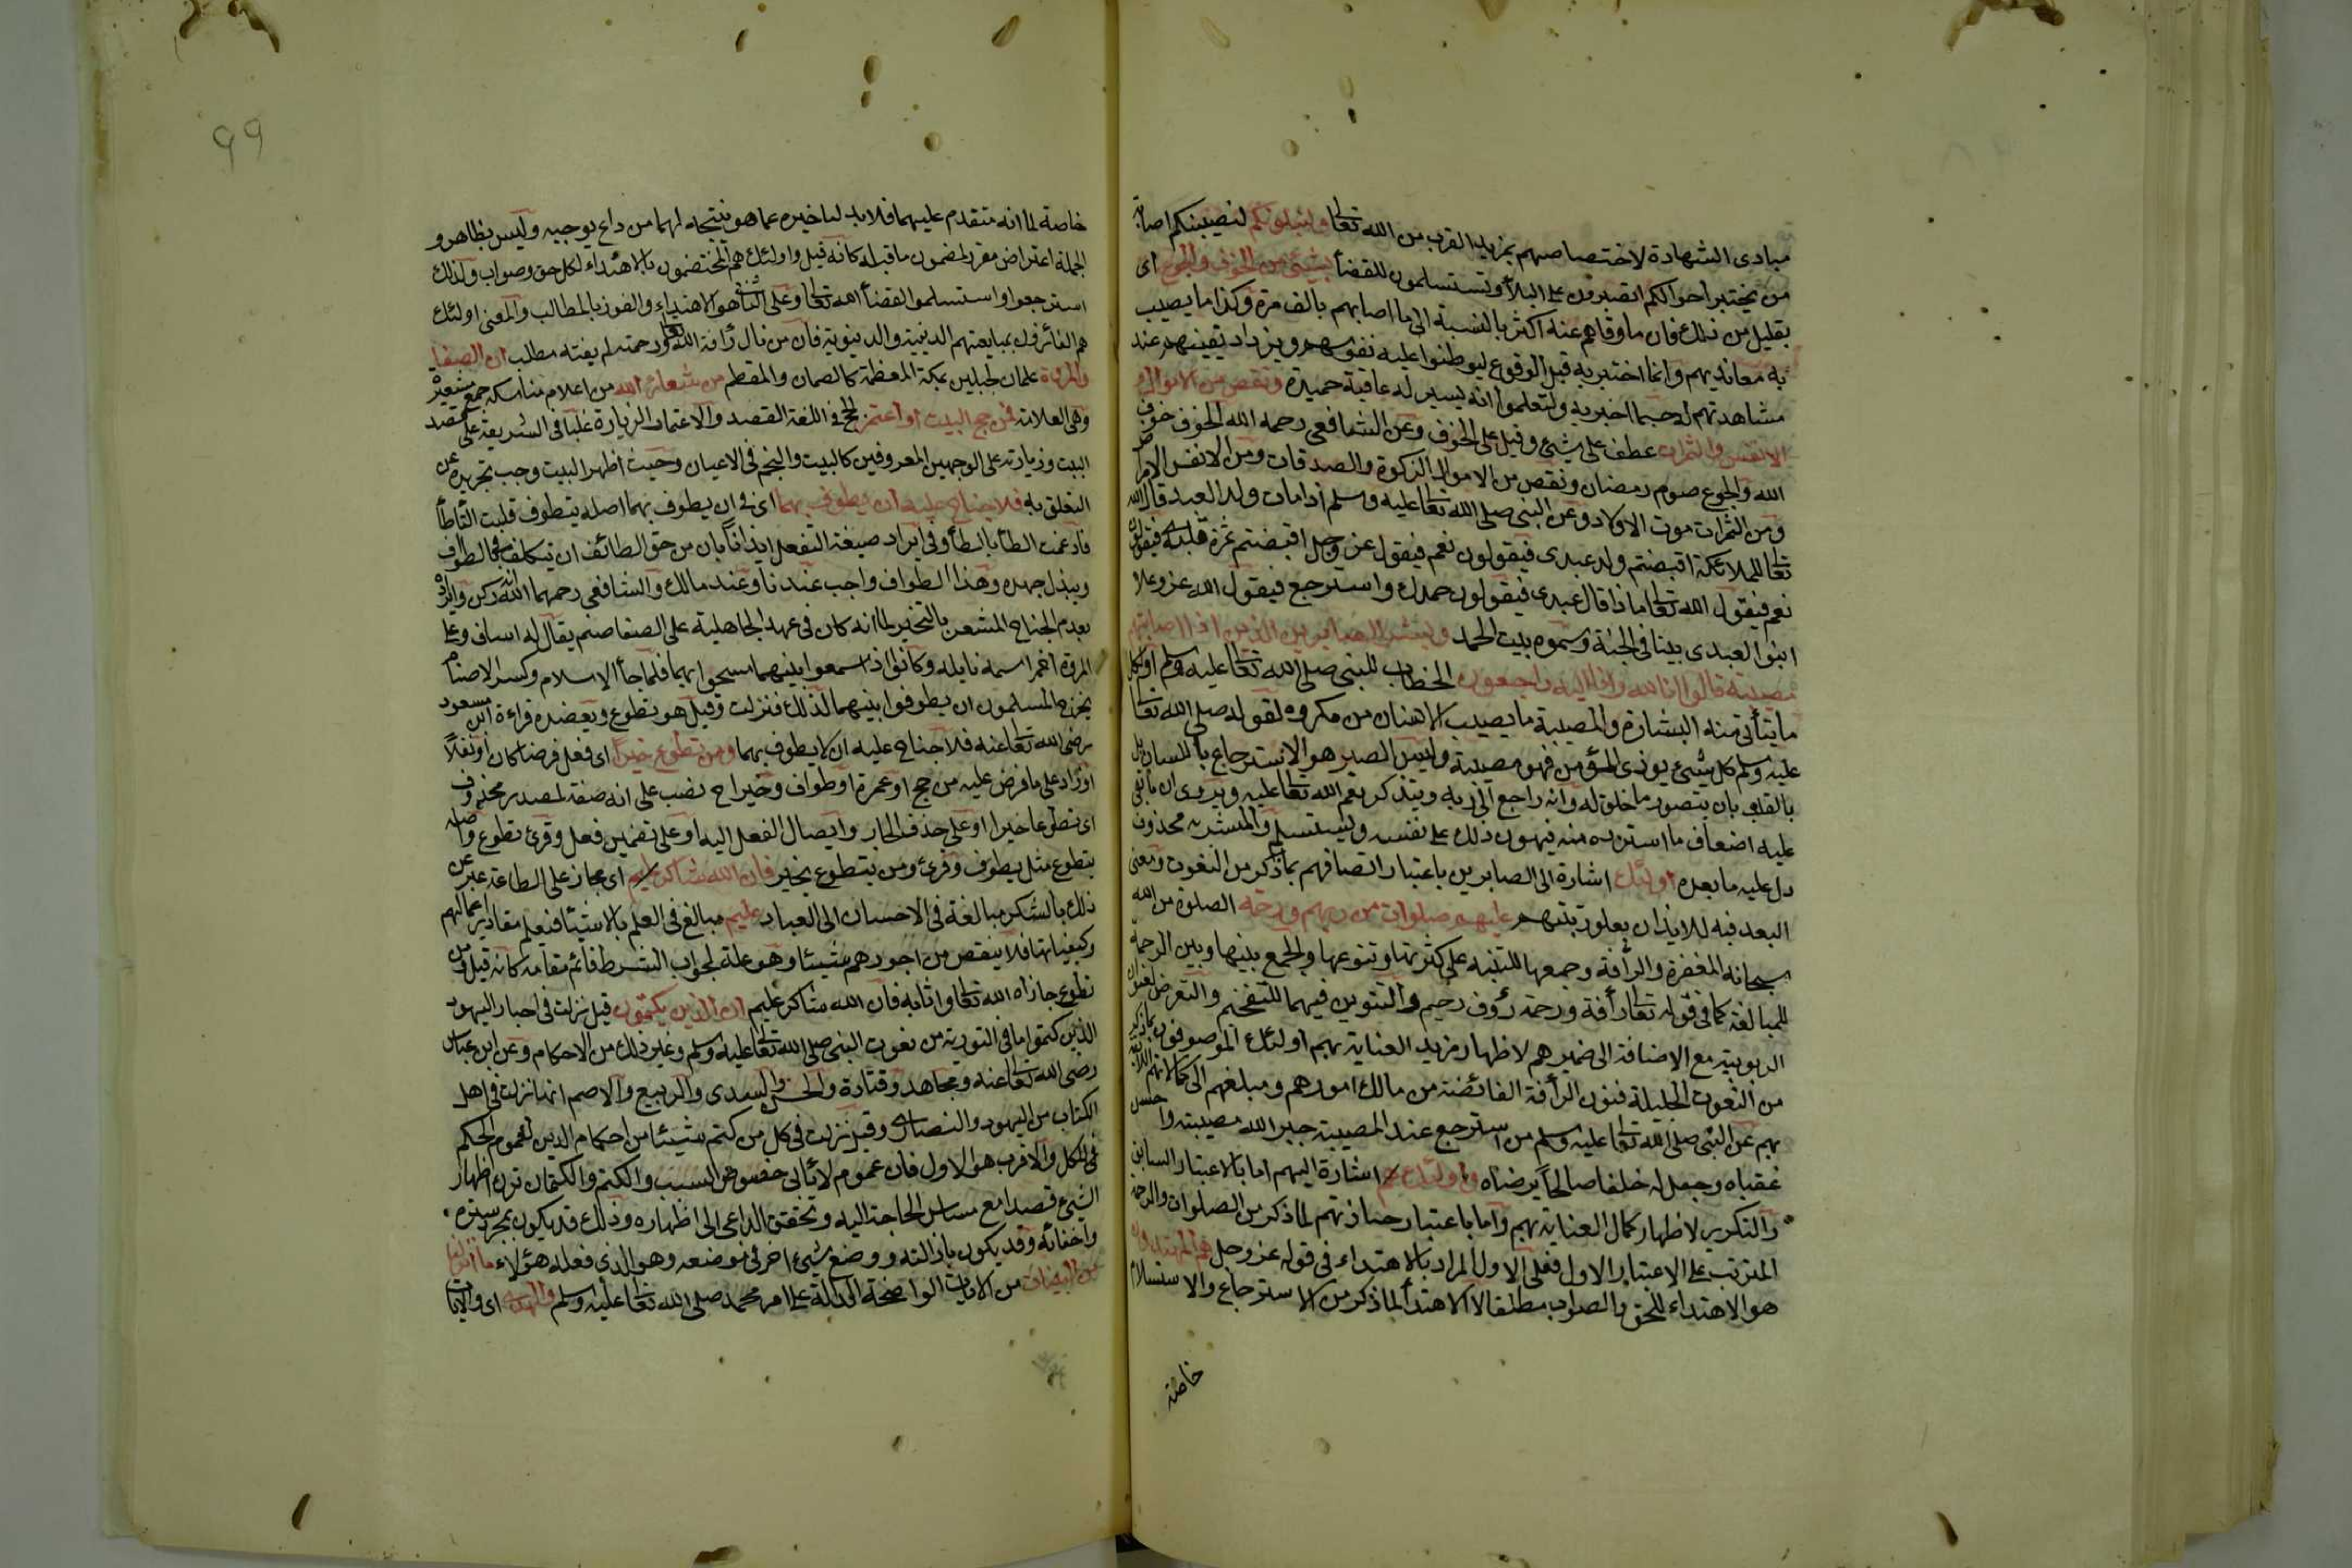 مبادى الشهادة لاختصاصهم بمزيد القرب من الله تعالى ولنبلونكم لنصيبنكم اصابة
من يختبر احوالكم اتصبرون على البلأ وتستسلمون للقضأ بشيئ من الخوف والجوع اى
بقليل من ذلك فان ما وقاهم عنه اكثر بالنسبة الى ما اصابهم بالف مرة وكذا ما يصيب
به معانديهم وانما اختبر به قبل الوقوع ليوطنوا عليه نفوسهم ويزداد يقينهم عند
مشاهدتهم له حسبما اخبر به وليعلموا انه يسير له عاقبة حميدة ونقص من الاموال و
الانفس والثمرات عطف على شيئ وقيل على الخوف وعن الشافعى رحمه الله الخوف خوف
الله والجوع صوم رمضان ونقص من الاموال الزكوة والصدقات ومن الانفس الامراض
ومن الثمرات موت الاولاد وعن النبى صلى الله تعالى عليه وسلم اذا مات ولد العبد قال الله
تعالى للملائكة اقبضتم ولد عبدى فيقولون نعم فيقول عز وجل اقبضتم ثمرة قلبه فيقولون
نعم فيقول الله تعالى ماذا قال عبدى فيقولون حمدك واسترجع فيقول الله عز وعلا
ابنوا لعبدى بيتا فى الجنة وسموه بيت الحمد وبشر الصابرين الذين اذا اصابتهم
مصيبة قالوا انا لله وانا اليه راجعون الخطاب للنبى صلى الله تعالى عليه وسلم او لكل
ما يتأتى منه البشارة والمصيبة ما يصيب الانسان من مكروه لقوله صلى الله تعالى
عليه وسلم كل شيئ يوذى المؤمن فهو مصيبة وليس الصبر هو الاسترجاع باللسان بل
بالقلب بان يتصور ما خلق له وانه راجع الى ربه ويتذكر نعم الله تعالى عليه ويروى ان ما ابقى
عليه اضعاف ما استرده منه فيهون ذلك على نفسه ويستسلم والمبشر به محذوف
دل عليه ما بعده اولئك اشارة الى الصابرين باعتبار اتصافهم بما ذكر من النعوت ومعنى
البعد فيه للايذان بعلو رتبتهم عليهم صلوات من ربهم ورحمة الصلوة من الله
سبحانه المغفرة والرأفة وجمعها للتنبيه على كثرتها وتنوعها والجمع بينها وبين الرحمة
للمبالغة كما فى قوله تعالى رأفة ورحمة رؤف رحيم والتنوين فيهما للتفخيم والتعرض لعنوان
الربوبية مع الاضافة الى ضميرهم لاظهار مزيد العناية بهم اولئك الموصوفون بما ذكر
من النعوت الجليلة فنون الرأفة الفائضة من مالك امورهم ومبلغهم الى كمالاتهم اللائقة
بهم عن النبى صلى الله تعالى عليه وسلم من استرجع عند المصيبة جبر الله مصيبته واحسن
عقباه وجعل له خلفا صالحاً يرضاه واولئك هم اشارة اليهم اما بالاعتبار السابق
والتكرير لاظهار كمال العناية بهم واما باعتبار حيازتهم لما ذكر من الصلوات والرحمة
المترتب على الاعتبار الاول فعلى الاول المراد بالاهتداء فى قوله عز وجل هم المهتدون
هو الاهتداء للحق والصواب مطلقا لا الاهتدأ لما ذكر من الاسترجاع والاستسلام
خاصة
99
خاصة لما انه متقدم عليهما فلابد لتاخيره عما هو نتيجة لهما من داع يوجبه وليس بظاهر و
الجملة اعتراض مقرر لمضمون ما قبله كانه قيل واولئك هم المختصون بالاهتداء لكل حق وصواب ولذلك
استرجعوا واستسلموا لقضأ الله تعالى وعلى الثانى هو الاهتداء والفوز بالمطالب والمعنى اولئك
هم الفائزون بمباغيهم الدينية والدنيوية فان من نال رأفة الله تعالى ورحمته لم يفته مطلب ان الصفا
والمروة علمان لجبلين بمكة المعظمة كالصمان والمقطم من شعائر الله من اعلام مناسكه جمع شعيرة
وهى العلامة فمن حج البيت او اعتمر الحج فى اللغة القصد والاعتمار الزيارة غلبا فى الشريعة على قصد
البيت وزيارته على الوجهين المعروفين كالبيت والنجم فى الاعيان وحيث اظهر البيت وجب تجريده عن
التعلق به فلا جناح عليه ان يطوف بهما اى فى ان يطوف بهما اصله يتطوف قلبت التأ طأ
فادغمت الطأ بالطأ وفى ايراد صيغة التفعل ايذانا بان من حق الطائف ان يتكلف فى الطواف
ويبذل جهده وهذا الطواف واجب عندنا وعند مالك والشافعى رحمهما الله انه ركن وايراده
بعدم الجناح المشعر بالتخيير لما انه كان فى عهد الجاهلية على الصفا صنم يقال له اساف وعلى
المروة اخر اسمه نايله وكانوا اذا سعوا بينهما مسحوا بهما فلما جأ الاسلام وكسر الاصنام
تحرج المسلمون ان يطوفوا بينهما لذلك فنزلت وقيل هو تطوع ويعضده قراءة ابن مسعود
رضى الله تعالى عنه فلا جناح عليه ان لا يطوف بهما ومن تطوع خيرا اى فعل فرضا كان او نفلاً
او زاد على ما فرض عليه من حج او عمرة او طواف وخيرا ح نصب على انه صفة لمصدر محذوف
اى تطوعا خيرا او على حذف الجار وايصال الفعل اليه او على تضمين فعل وقرئ تطوع واصله
يتطوع مثل يطوف وقرئ ومن يتطوع بخير فان الله شاكر اى مجاز على الطاعة عبر عن
ذلك بالشكر مبالغة فى الاحسان الى العباد عليم مبالغ فى العلم بالاشيأ فيعلم مقادير اعمالهم
وكيفياتها فلا ينقص من اجورهم شيئا وهو علة لجواب الشرط قائم مقامه كانه قيل ومن
تطوع جازاه الله تعالى واثابه فان الله شاكر عليم ان الذين يكتمون قيل نزلت فى احبار اليهود
الذين كتموا ما فى التورية من نعوت النبى صلى الله تعالى عليه وسلم وغير ذلك من الاحكام وعن ابن عباس
رضى الله تعالى عنه ومجاهد وقتادة والحسن والسدى والربيع والاصم انها نزلت فى اهل
الكتاب من اليهود والنصارى وقيل نزلت فى كل من كتم شيئا من احكام الدين لعموم الحكم
فى الكل والاقرب هو الاول فان عموم لا يأبى خصوص السبب والكتم والكتمان ترك اظهار
الشيئ قصدا مع مساس الحاجة اليه وتحقق الداعى الى اظهاره وذلك قد يكون بمجرد ستره
واخفائه وقد يكون بازالته ووضع شيئ اخر فى موضعه وهو الذى فعله هؤلاء ما انزلنا
من البينات من الايات الواضحة الدالة على امر محمد صلى الله تعالى عليه وسلم والهدى اى والايات